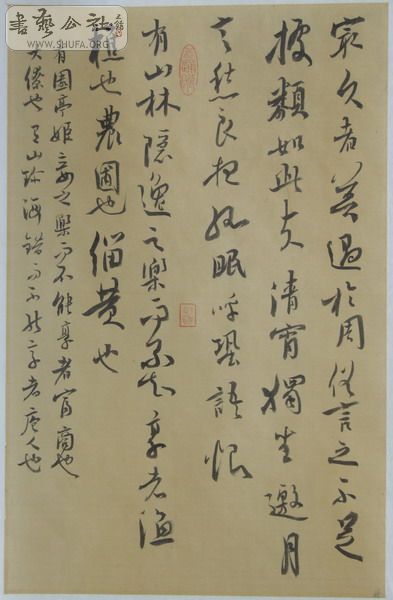 書藝公社
WWW.SHUFA.ORG
久者莫過於周俗言之不足
據類如此夫清宵獨坐邀月
言愁良夜孤眠呼蛩語恨
有山林隱逸之樂而不知享者漁
樵也農圃也緇黄也
有園亭姬妾之樂而不能享者富商也
大僚也有山珍海錯而不能享者庖人也